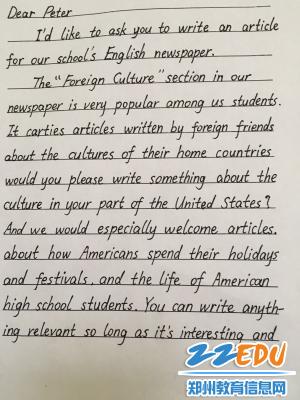 Dear Peter
I'd like to ask you to write an article
for our school's English newspaper.
The "Foreign Culture" section in our
newspaper is very popular among us students.
It carties articles written by foreign friends
about the cultures of their home countries
would you please write something about the
culture in your part of the United States?
And we would especially welcome articles.
about how Americans spend their holidays
and festivals, and the life of American
high school students. You can write anyth-
ing relevant so long as it's interesting and
22EDU
郑州教育信息网